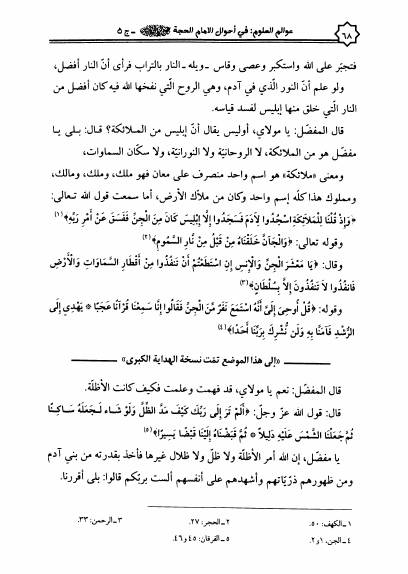 ٦٨ عوالم العلوم: في أحوال الامام الحجة ـ ج ٥
فتجبّر على الله واستكبر وعصى وقاس ـ ويله ـ النار بالتراب فرأى أنّ النار أفضل،
ولو علم أنّ النور الّذي في آدم، وهي الروح الّتي نفخها الله فيه كان أفضل من
النار الّتي خلق منها إبليس لفسد قياسه.
قال المفضّل: يا مولاي، أوليس يقال أنّ إبليس من الملائكة؟ قال: بلى يا
مفضّل هو من الملائكة، لا الروحانيّة ولا النورانيّة، ولا سكّان السماوات،
ومعنى «ملائكة» هو اسم واحد منصرف على معان فهو ملك، وملك، ومالك،
ومملوك هذا كلّه إسم واحد وكان من ملاك الأرض، أما سمعت قول الله تعالى:
﴿وَإِذْ قُلْنَا لِلْمَلَائِكَةِ اسْجُدُوا لِآدَمَ فَسَجَدُوا إِلَّا إِبْلِيسَ كَانَ مِنَ الْجِنِّ فَفَسَقَ عَنْ أَمْرِ رَبِّهِ﴾(١)
وقوله تعالى: ﴿وَالْجَآنَّ خَلَقْنَاهُ مِنْ قَبْلُ مِن نَّارِ السَّمُومِ﴾(٢)
وقال: ﴿يَا مَعْشَرَ الْجِنِّ وَالْإِنسِ إِنِ اسْتَطَعْتُمْ أَنْ تَنفُذُوا مِنْ أَقْطَارِ السَّمَاوَاتِ وَالْأَرْضِ
فَانفُذُوا لَا تَنفُذُونَ إِلَّا بِسُلْطَانٍ﴾(٣)
وقوله: ﴿قُلْ أُوحِيَ إِلَيَّ أَنَّهُ اسْتَمَعَ نَفَرٌ مِّنَ الْجِنِّ فَقَالُوا إِنَّا سَمِعْنَا قُرْآنًا عَجَبًا * يَهْدِي إِلَى
الرُّشْدِ فَآمَنَّا بِهِ وَلَن نُّشْرِكَ بِرَبِّنَا أَحَدًا﴾(٤)
«إلى هذا الموضع تمّت نسخة الهداية الكبرى»
قال المفضّل: نعم يا مولاي، قد فهمت وعلمت فكيف كانت الأظلّة.
قال: قول الله عزّ وجلّ: ﴿أَلَمْ تَرَ إِلَى رَبِّكَ كَيْفَ مَدَّ الظِّلَّ وَلَوْ شَاء لَجَعَلَهُ سَاكِنًا
ثُمَّ جَعَلْنَا الشَّمْسَ عَلَيْهِ دَلِيلاً * ثُمَّ قَبَضْنَاهُ إِلَيْنَا قَبْضًا يَسِيرًا﴾(٥)
يا مفضّل، إن الله أمر الأظلّة ولا ظلّ ولا ظلال غيرها فأخذ بقدرته من بني آدم
ومن ظهورهم ذرّيّاتهم وأشهدهم على أنفسهم ألست بربّكم قالوا: بلى أقررنا.
١ـ الكهف: ٥٠. ٢ـ الحجر: ٢٧. ٣ـ الرحمن: ٣٣.
٤ـ الجن: ١و٢. ٥ـ الفرقان: ٤٥ و٤٦.